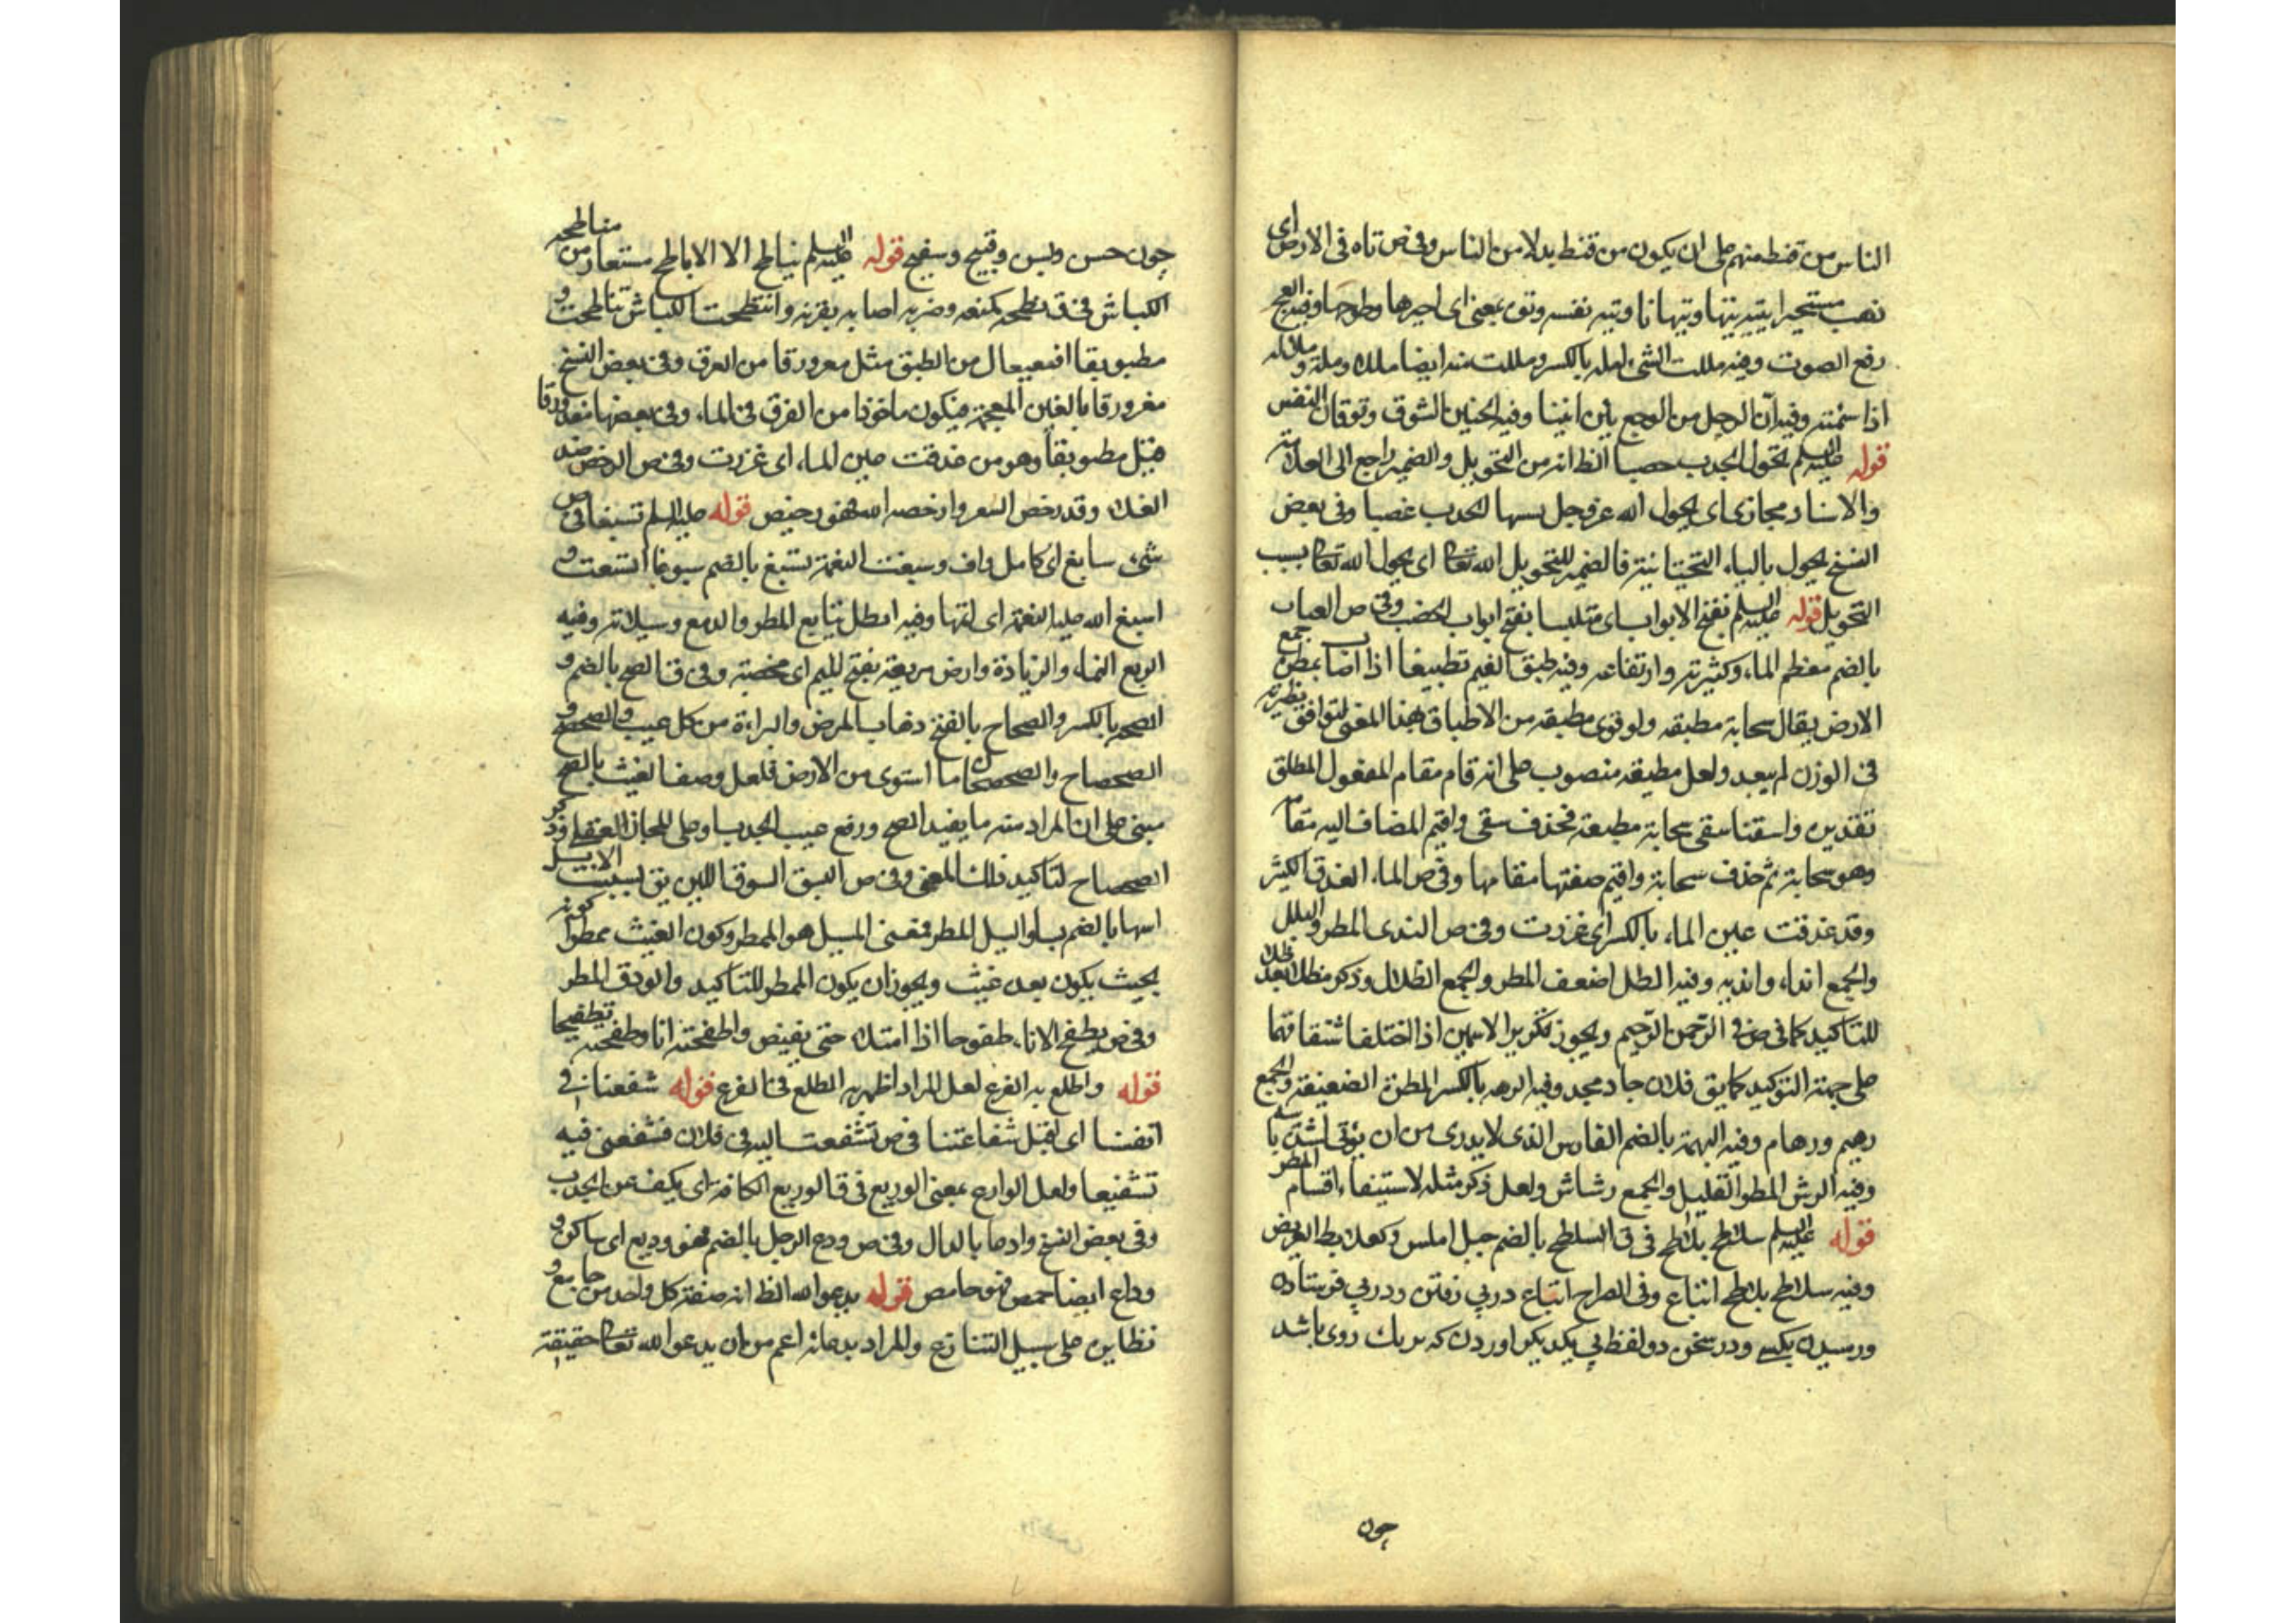 الناس من قنط منهم على ان يكون من قنط بدلا من الناس وفى ص تاه فى الارض اى
ذهب متحيرا يتيه تيها وتيهانا وتيه نفسه وتوه بمعنى اى احيرها وطوحها وفيه العج
رفع الصوت وفيه مللت الشئ امله بالكسر ومللت منه ايضا مللا وملة وملالة
اذا سئمته وفيه ان الرجل من الوجع يئن انينا وفيه الحنين الشوق وتوقان النفس
قوله عليه السلم تحول الجدب خصبا الظ انه من التحويل والضمير راجع الى
والاسناد مجازى اى يحول الله عز وجل بسببها الجدب خصبا وفى بعض
النسخ يحول بالياء التحتانية فالضمير للتحويل الله تعا اى يحول الله تعا بسبب
التحويل قوله عليه السلم بفتح الابواب اى متلبسا بفتح ابواب الخصب وفى ص العباب
بالضم معظم الماء وكثرته وارتفاعه وفيه طبق الغيم تطبيقا اذا اصاب بمطره جميع
الارض يقال سحابة مطبقه ولو قرى مطبقه من الاطباق بهذا المعنى لتوافق نظيره
فى الوزن لم يبعد ولعل مطبقه منصوب على انه قام مقام المفعول المطلق
تقديره واسقنا سقى سحابة مطبقة فحذف سقى واقيم المضاف اليه مقامه
وهو سحابة ثم حذف سحابة واقيم صفتها مقامها وفى ص الماء الغدق الكثير
وقد غدقت عين الماء بالكسر اى غزرت وفى ص الندى المطر والبلل
والجمع انداء واندية وفيه الطل اضعف المطر والجمع الطلال وذكر مطلا بعد طلا
للتاكيد كما فى ص فى الرحمن الرحيم ويجوز تكرير الاسمين اذا اختلف اشتقاقهما
على جهة التوكيد كما يق فلان جاد مجد وفيه الرهمه بالكسر المطرة الضعيفة والجمع
رهم ورهام وفيه البهمة بالضم الفارس الذى لا يدرى من اين يؤتى لشدة باسه
وفيه الرش المطر القليل والجمع رشاش ولعل ذكر مثله لاستيفاء اقسام المطر
قوله عليه السلم سلاطح بلاطح فى ق السلطح بالضم جبل املس وكعلابط العريض
وفيه سلاطح بلاطح اتباع وفى الصراح اتباع در پى رفتن ودر پى فرستادن
ورسيدن بكسى ودر سخن دو لفظ پى يكديكر اوردن كه بر يك روى باشد
چون
چون حسن وبسن وقبيح وشقيح قوله عليه السلم يناطح الا الاباطح مستعار من مناطحه
الكباش فى ق نطحه كمنعه وضربه اصابه بقرنه وانتطحت الكباش تناطحت و
مطبوبقا افعيعال من الطبق مثل معرورقا من العرق وفى بعض النسخ
مغرورقا بالغين المعجمة فيكون ماخوذا من الغرق فى الماء وفى بعضها مغدورقا
قبل مطبوبقا وهو من غدقت عين الماء اى غزرت وفى ص الرخص ضد
الغلاء وقد رخص السعر وارخصه الله فهو رخيص قوله عليه السلم تسبغا فى ص
شئ سابغ اى كامل واف وسبغت النعمة تسبغ بالضم سبوغا اتسعت و
اسبغ الله عليه النعمة اى اتمها وفيه تتابع المطر والدمع وسيلانه وفيه
الريع النماء والزيادة وارض مريعة بفتح الميم اى مخصبة وفى ق الصح بالضم و
الصحه بالكسر والصحاح بالفتح ذهاب المرض والبراءة من كل عيب والصحصح و
الصحصاح والصحصحان ما استوى من الارض فلعل وصف الغيث بالصح
مبنى على ان المراد منه ما يفيد الصح ورفع عيب الجدب او على المجاز العقلى وذكر
الصحصاح لتاكيد ذلك المعنى وفى ص يق
بحيث يكون بعده غيث ويجوز ان يكون الممطر للتاكيد والودق المطر
وفى ص يطفح الاناء طفوحا اذا امتلاء حتى يفيض واطفحته انا وطفحته تطفيحا
قوله واطلع به الفرع لعل المراد اظهر به الطلع فى الفرع قوله شفعنا فى
انفسنا اى تقبل شفاعتنا فى ص تشفعت اليه فى فلان فشفعنى فيه
تشفيعا ولعل الوارع بمعنى الوريع فى ق الوريع الكاف اى يكف عن الجدب
وفى بعض النسخ وادعا بالدال وفى ص ودع الرجل بالضم فهو وديع اى ساكن و
وداع ايضا حمض فهو حامض قوله يدعو الله الظ انه صفة كل واحد من جامع و
نظاير على سبيل التنازع والمراد بدعائه اعم من ان يدعو الله تعا حقيقة